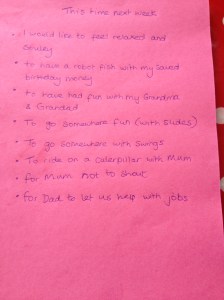 This time next week
• I would like to feel relaxed and
• to have a robot fish with my saved
birthday money
• to have had fun with my Grandma
& Grandad
• To go somewhere fun (with slides)
• To go somewhere with swings
• To ride on a caterpillar with Mum
• for Mum not to shout
• for Dad to let us help with jobs